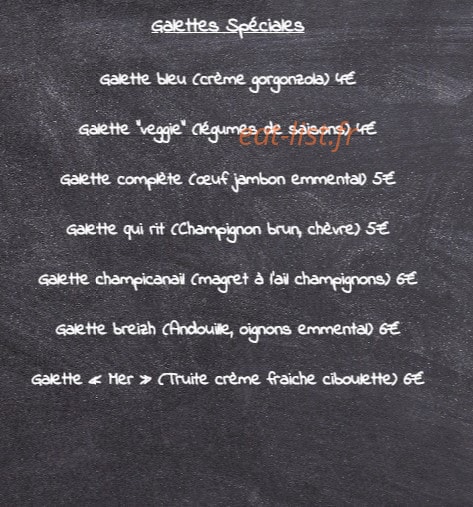 Galettes Spéciales
Galette bleu (crème gorgonzola) 4€
Galette "veggie" (légumes de saisons) 4€
eat-list.fr
Galette complète (œuf jambon emmental) 5€
Galette qui rit (Champignon brun, chèvre) 5€
Galette champicanail (magret à l'ail champignons) 6€
Galette breizh (Andouille, oignons emmental) 6€
Galette « Mer » (Truite crème fraiche ciboulette) 6€